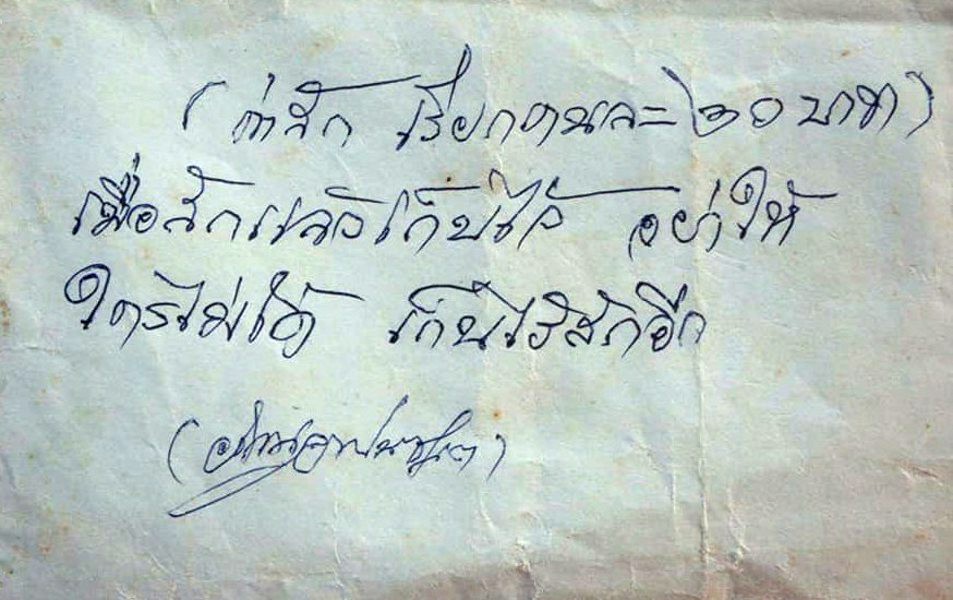 (ค่าสัก เรียกคนละ ๒๐ บาท)
เมื่อสักแล้วเก็บไว้ อย่าให้
ใครไม่ได้ เก็บไว้สักอีก